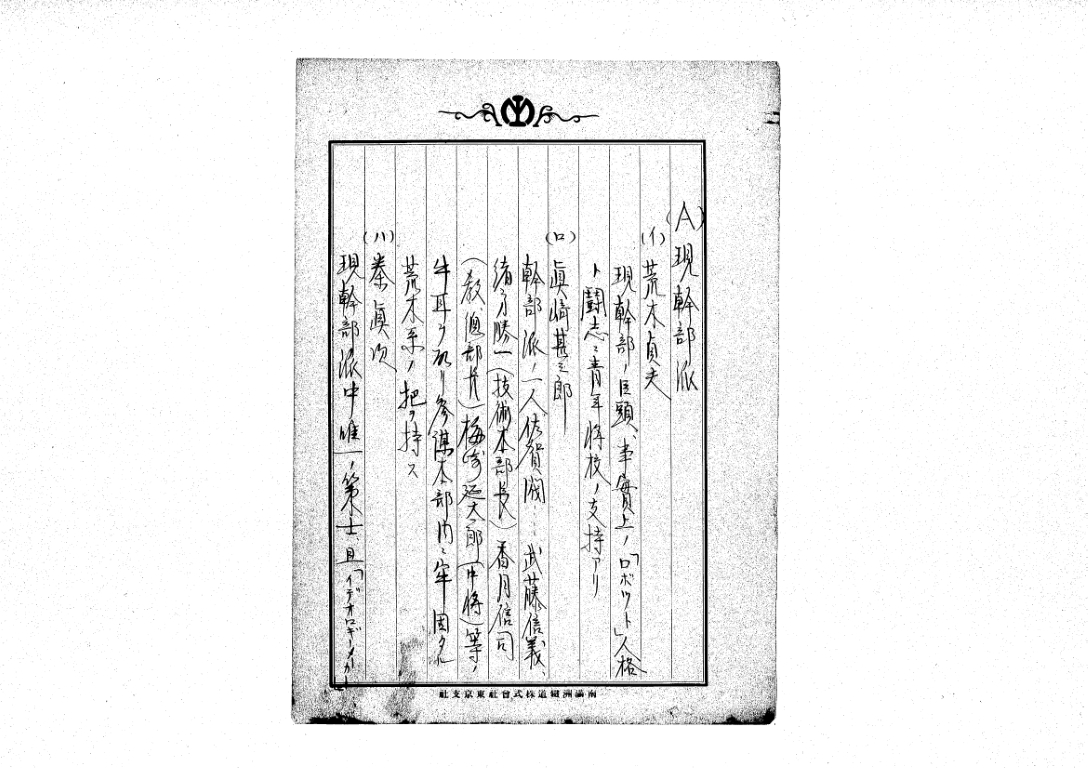 (A) 現幹部派
(イ) 荒木貞夫
現幹部ノ巨頭、事實上ノ「ロボツト」人格
ト闘志ニ青年将校ノ支持アリ
(ロ) 眞崎甚三郎
幹部派ノ一人佐賀閥……武藤信義、
緒方勝一(技術本部長)香月信司
(教、總部附)梅崎延太郎(中将)等ノ
牛耳ヲ取リ参謀本部内ニ牢固タル
荒木系ノ把ヲ持ス
(ハ) 秦眞次
現幹部派中唯一ノ策士、且「イデオロギーメーカー
南滿洲鐵道株式會社東京支社